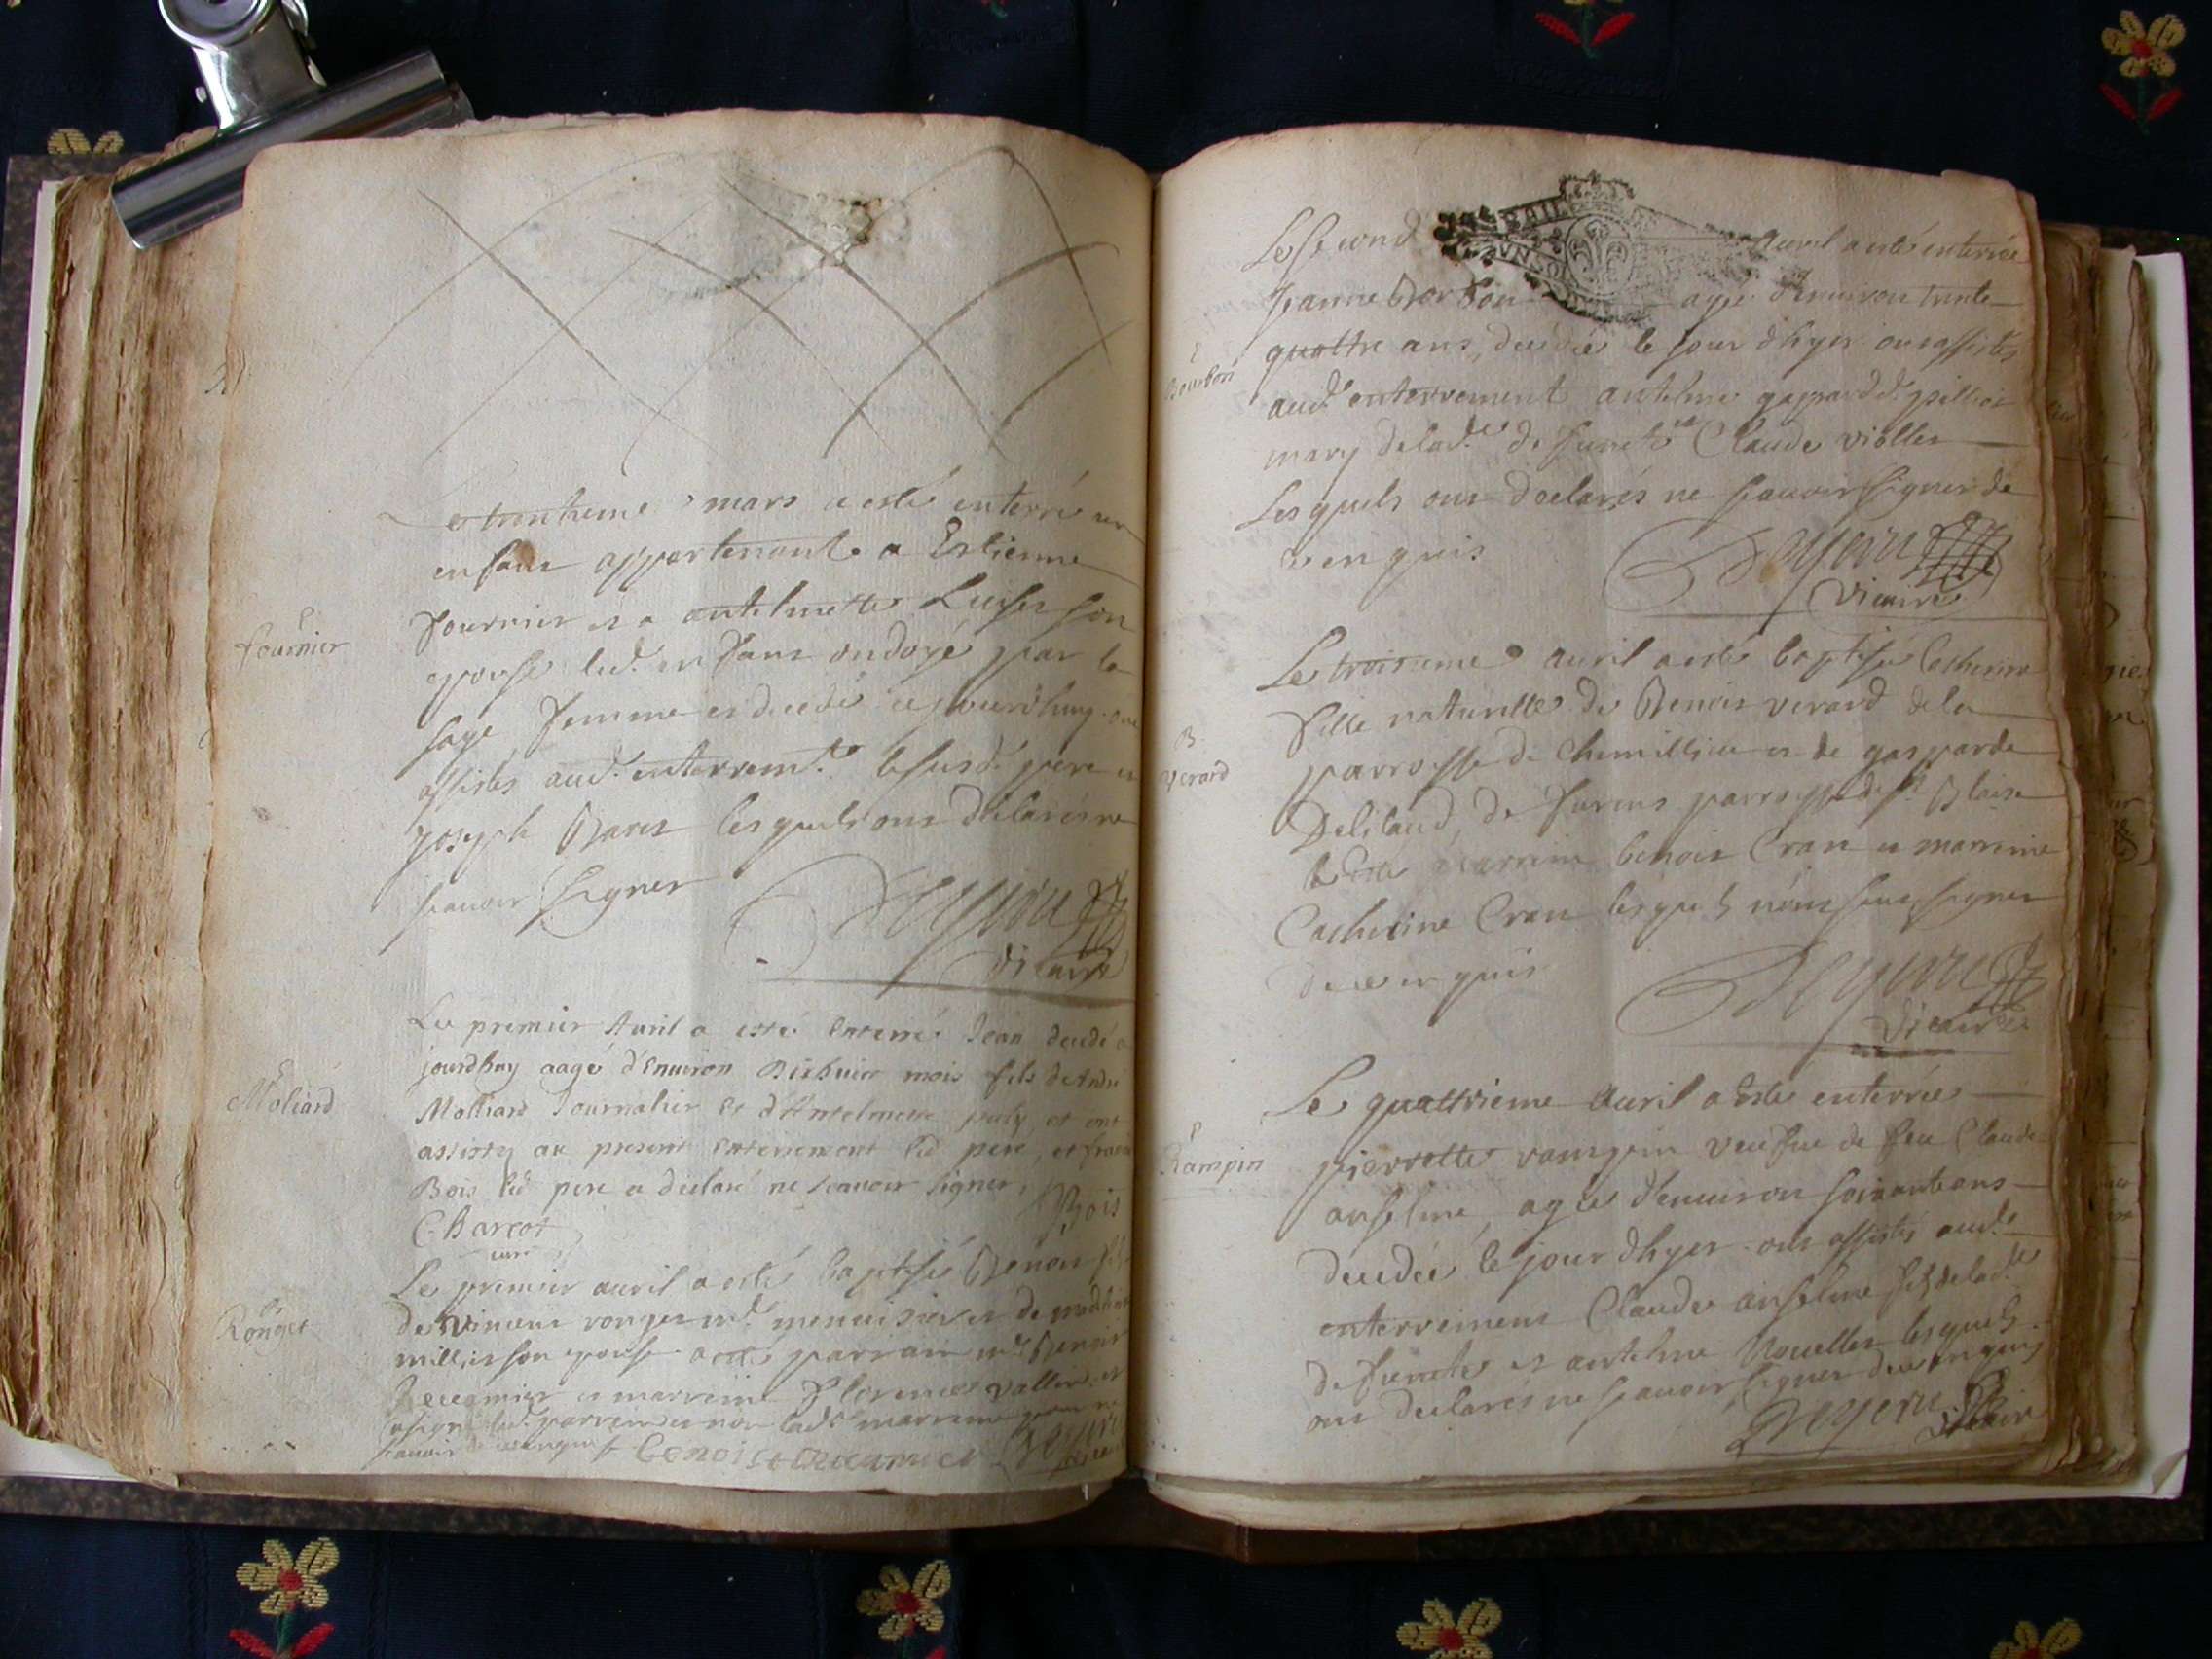 trentieme mars a esté enterré un
enfant appartenant a Estienne
E
fournier
fournier et a antelmette son
epouse led. enfant ondoyé par la
sage femme et decedé ce jourdhuy ont
assistés aud. enterremt. le susd. pere et
joseph lesquels ont déclarés ne
scavoir signer
Vicaire
Le premier Avril a esté Enterré Jean decedé a
jourdhuy aagé d'Environ Dixhuict mois fils de André
E
Moliard
Molliard Journalier Et d'Antelmette et ont
assistez au present Enterrement led pere, et francois
Bois led pere a déclaré ne scavoir signer,
Bois
Charcot
curé
Le premier avril a esté baptisé Benoit fils
B
Ronget
de Vincent ronget me. menuisier et de
millet son epouse a esté parrain me. Benoit
Recamier et marreine Florence Vallin et
a signé led. parrein et non lad. marreine pour ne
scavoir enquis Benoist Recamier
Le second avril a esté enterrée
BAIL
VN SOL
Jeanne Borbon agée d'environ trente
quattre ans, decedée le jour d'hyer ont assistés
E
Bourbon
aud. enterrement antelme gaspard
mary de lad. defuncte et Claude viollet
Lesquels ont déclarés ne scavoir signer de
ce enquis
Vicaire
Le troisieme avril a esté baptisée Catherine
fille naturelle de Benoit verard de la
B
Verard
parroisse de Chemillieu et de gasparde
de furens parroisse de St Blaise
a Esté parrein benoit Cran et marreine
Catherine Cran lesquels n'ont sceu signer
de ce enquis
Vicaire
Le quattrieme avril a Esté enterrée
E
Rampin
pierrette rampin veufve de feu Claude
anselme, agée d'environ soixante ans
decedée le jour d'hyer ont assistés aud.
enterrement Claude anselme fils de lad.
defuncte et antelme Nouellet lesquels
ont declarés ne scavoir signer de ce enquis
Vicaire